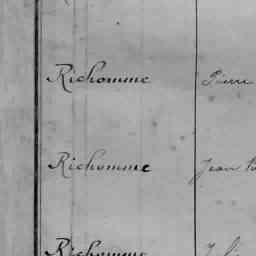 Richomme Pierre
Richomme Jean
Richomme